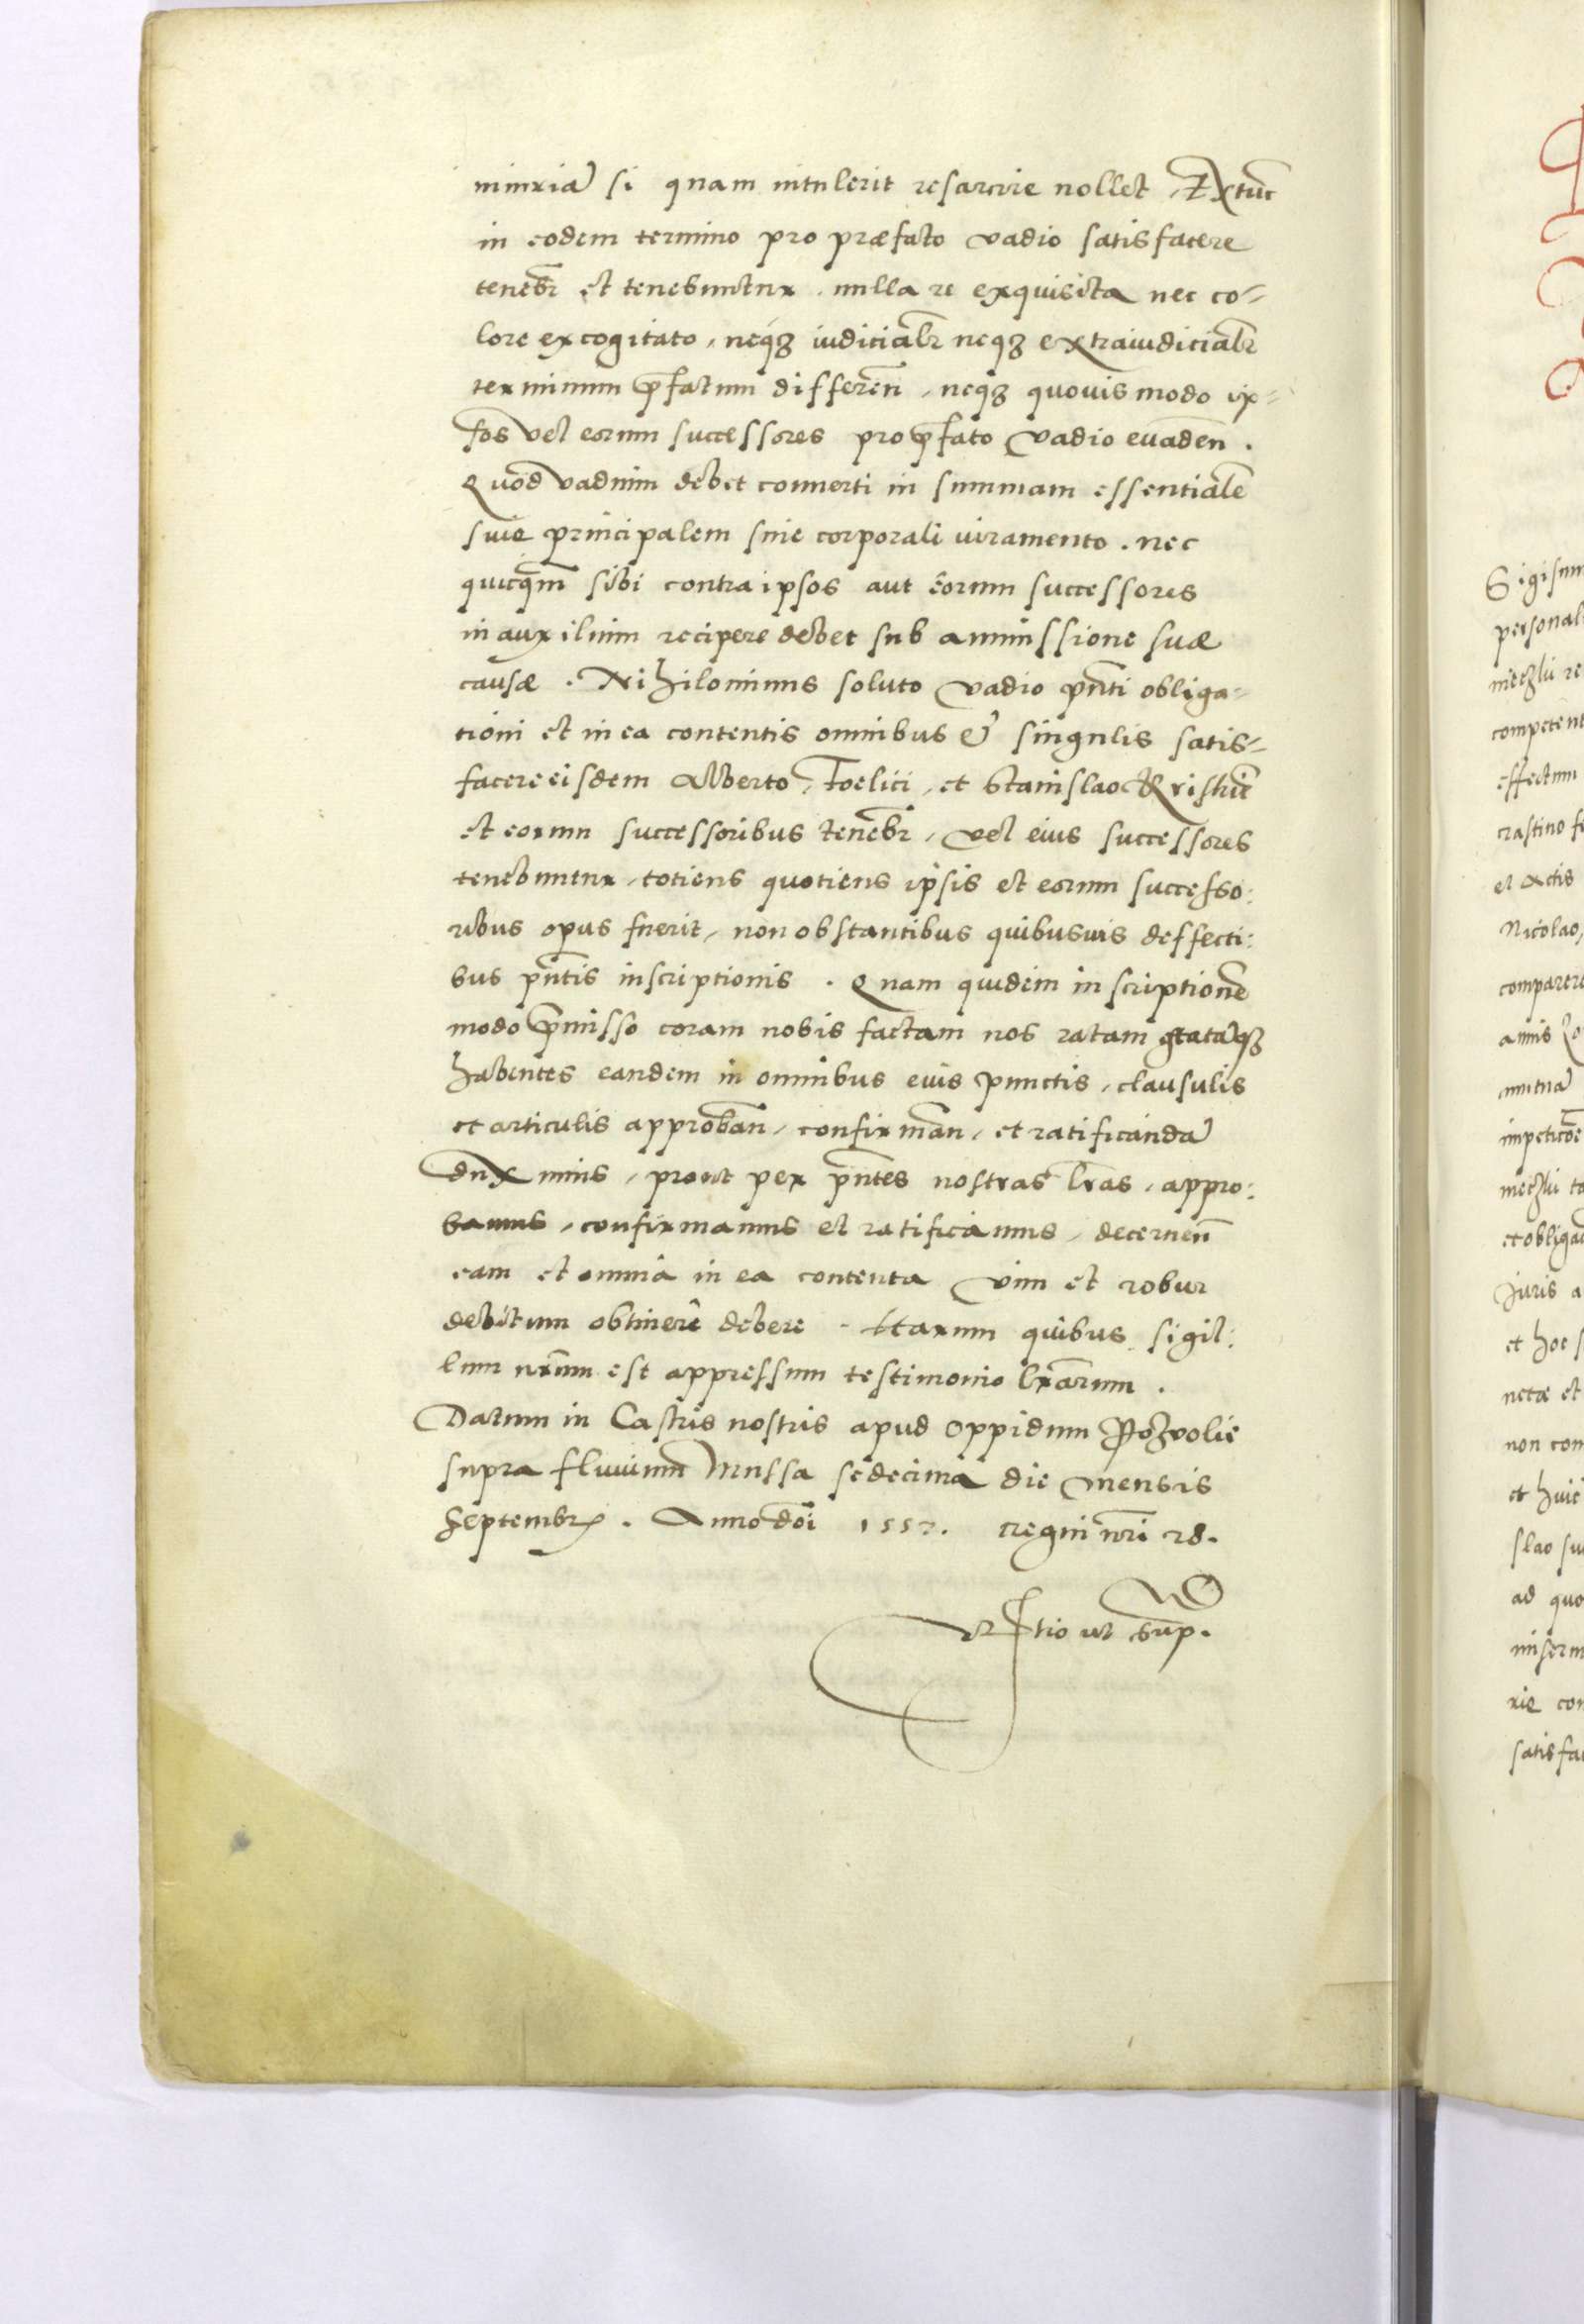 iniuriā si quam intulerit resarcire nollet, Extūc
in eodem termino pro præfato vadio satisfacere
tenebr̄ et tenebuntur, nulla re exquisita nec co-
lore excogitato, neqꝫ iudicialr̄ neqꝫ extraiudicialr̄
terminum p̄fatum differen̄, neqꝫ quovis modo ip-
sos vel eorum successores pro p̄fato vadio evaden̄.
Quod vadium debet converti in summam essentialē
sive principalem sine corporali iuramento. nec
quicq̄m sibi contra ipsos aut eorum successores
in auxilium recipere debet sub ammissione suæ
causæ. Nihilominus soluto vadio pn̄ti obliga-
tioni et in ea contentis omnibus & singulis satis-
facere eisdem Alberto, Foelici, et Stanislao
et eorum successoribus tenebr̄, vel eius successores
tenebuntur, totiens quotiens ipsis et eorum successo:
ribus opus fuerit, non obstantibus quibusvis deffecti:
bus pn̄tis inscriptionis. Quam quidem inscriptionē
modo p̄misso coram nobis factam nos ratam gratāqꝫ
habentes eandem in omnibus eius punctis, clausulis
et articulis approban̄, confirman̄, et ratificandā
duximus, prout per pn̄tes nostras lr̄as, appro:
bamus, confirmamus et ratificamus, decernen̄
eam et omnia in ea contenta vim et robur
debitum obtinere debere. Harum quibus sigil:
lum nr̄um est appressum testimonio lr̄arum.
Datum in Castris nostris apud oppidum Pozvolie
supra fluvium Mussa sedecima die mensis
Septembr̄. Anno doī 1557. regni nr̄i 28.
Rltio ut sup.
Sigism
personal
meczlii re
competent
effectum
crastino fe
et Actis
Nicolao,
comparere
mutuā
impeticōe
meczlii
et obliga
Juris a
et hoc s
netæ et
non con
et huic
slao su
ad quo
satisfac